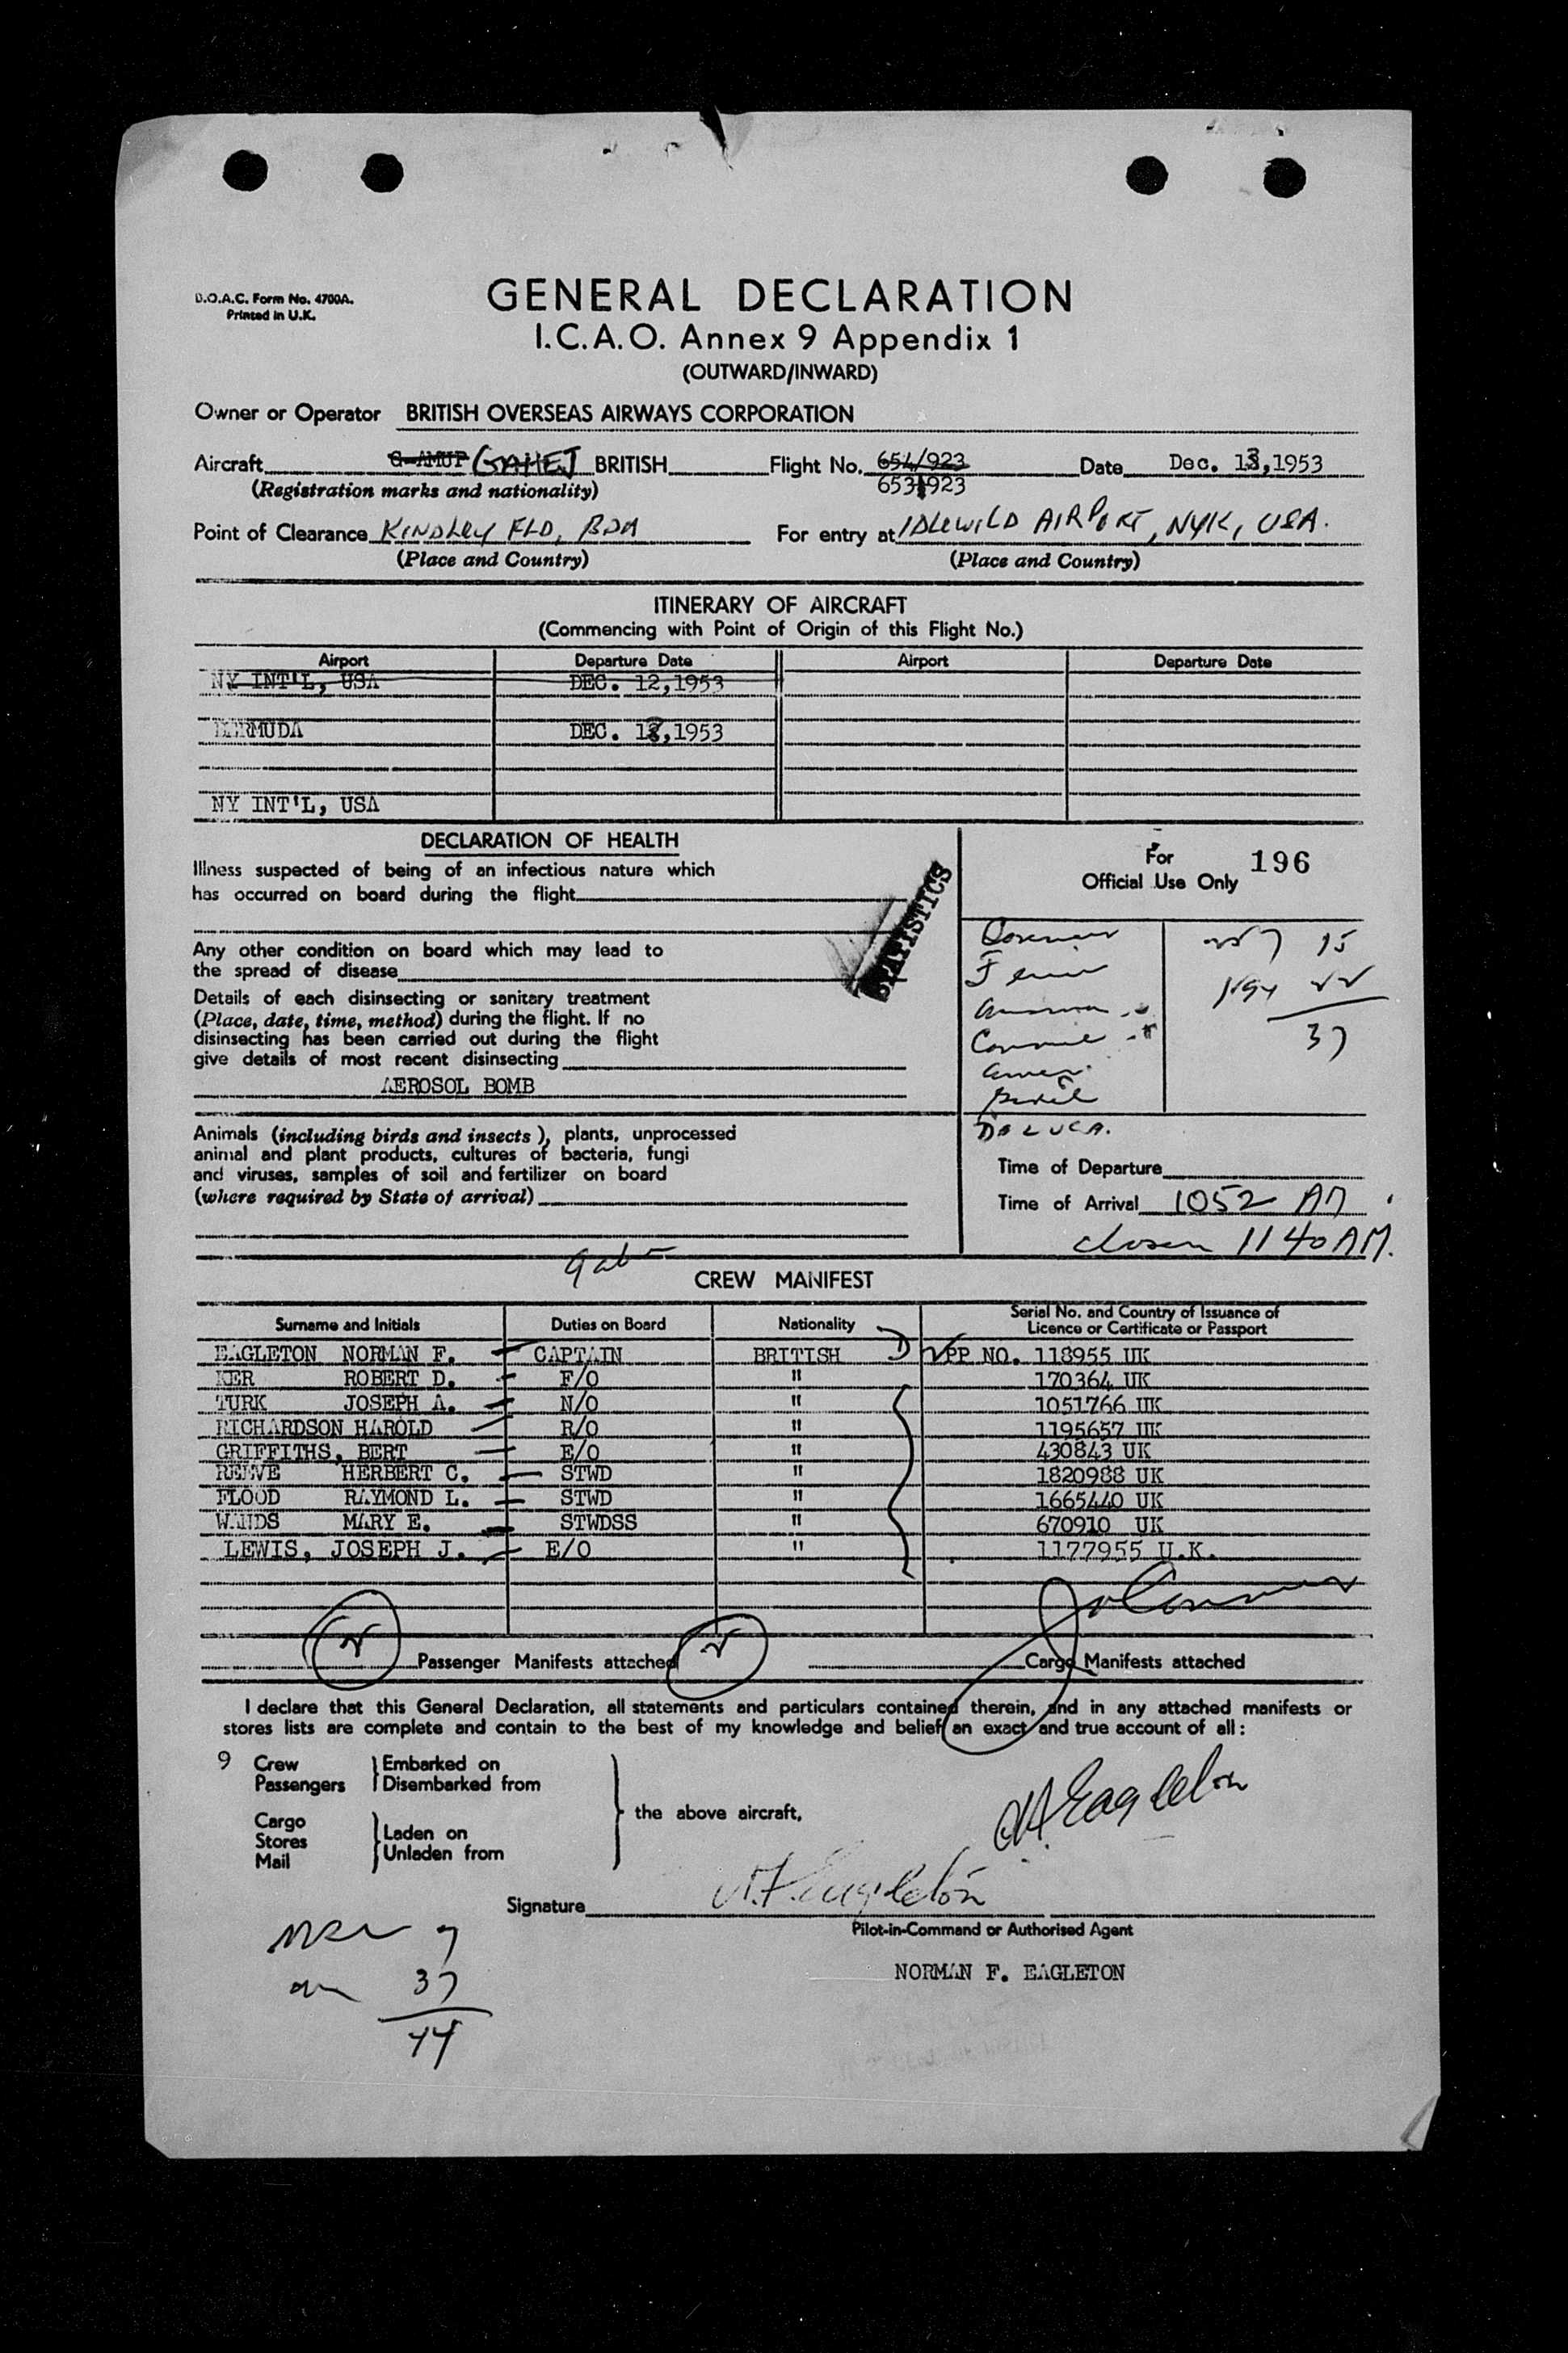 B.O.A.C. Form No. 4700A.
Printed in U.K.
GENERAL DECLARATION
I.C.A.O. Annex 9 Appendix 1
(OUTWARD/INWARD)
Owner or Operator BRITISH OVERSEAS AIRWAYS CORPORATION
Aircraft G-AMUP GAHEJ BRITISH Flight No. 654/923 Date Dec. 13,1953
(Registration marks and nationality) 653/923
Point of Clearance KINDLEY FLD, BDA For entry at IDLEWILD AIRPORT, NYK, USA.
(Place and Country) (Place and Country)
ITINERARY OF AIRCRAFT
(Commencing with Point of Origin of this Flight No.)
Airport Departure Date Airport Departure Date
NY INT'L, USA DEC. 12,1953
BERMUDA DEC. 13,1953
NY INT'L, USA
DECLARATION OF HEALTH
Illness suspected of being of an infectious nature which
has occurred on board during the flight
Any other condition on board which may lead to
the spread of disease
Details of each disinsecting or sanitary treatment
(Place, date, time, method) during the flight. If no
disinsecting has been carried out during the flight
give details of most recent disinsecting
AEROSOL BOMB
Animals (including birds and insects), plants, unprocessed
animal and plant products, cultures of bacteria, fungi
and viruses, samples of soil and fertilizer on board
(where required by State of arrival)
STATISTICS
For
Official Use Only 196
15
37
DELUCA.
Time of Departure
Time of Arrival 1052 AM
closed 1140 AM.
CREW MANIFEST
Surname and Initials Duties on Board Nationality Serial No. and Country of Issuance of
Licence or Certificate or Passport
EAGLETON NORMAN F. CAPTAIN BRITISH D PP NO. 118955 UK
KER ROBERT D. F/O " 170364 UK
TURK JOSEPH A. N/O " 1051766 UK
RICHARDSON HAROLD R/O " 1195657 UK
GRIFFITHS, BERT E/O " 430843 UK
REEVE HERBERT C. STWD " 1820988 UK
FLOOD RAYMOND L. STWD " 1665440 UK
WANDS MARY E. STWDSS " 670910 UK
LEWIS, JOSEPH J. E/O " 1177955 U.K.
Passenger Manifests attached Cargo Manifests attached
I declare that this General Declaration, all statements and particulars contained therein, and in any attached manifests or
stores lists are complete and contain to the best of my knowledge and belief an exact and true account of all:
9 Crew Embarked on
Passengers Disembarked from
the above aircraft,
Cargo
Stores Laden on
Mail Unladen from
N.F. Eagleton
Signature N.F. Eagleton
Pilot-in-Command or Authorised Agent
NORMAN F. EAGLETON
37
44